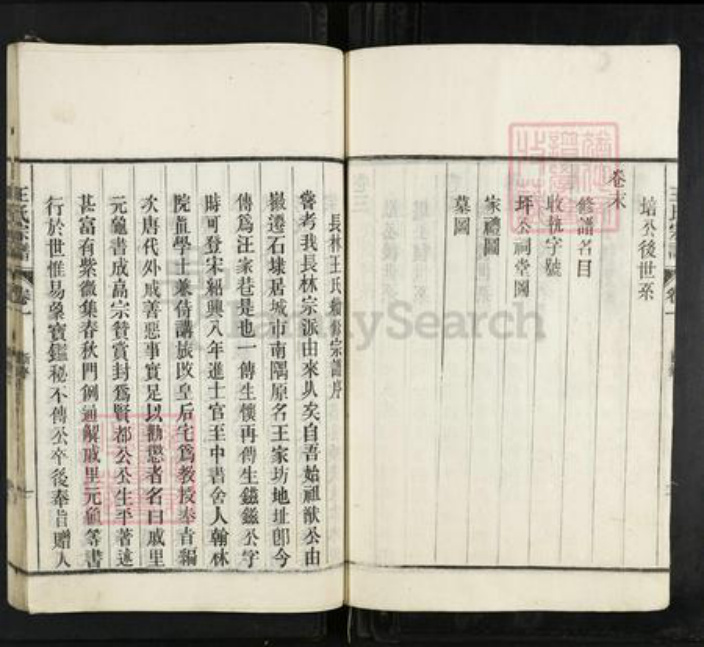 培公後世系
卷末
修譜名目
收執字號
坪公祠堂圖
家禮圖
墓圖
王氏宗譜
卷一
長林王氏續修宗譜序
嘗考我長林宗派由來乆矣自吾始祖猷公由
嶽遷石埭居城市南隅原名王家坊地址卽今
傳爲汪家巷是也一傳生懊再傳生鎡鎡公字
時可登宋紹興八年進士官至中書舍人翰林
院直學士兼侍講旅改皇后宅爲教授奉旨編
次唐代外戚善惡事實足以勸懲者名曰戚里
元龜書成高宗贊賞封爲賢都公公生平著述
甚富有紫微集春秋門例通解戚里元龜等書
行於世惟易象寶鑑秘不傳公卒後奉旨贈人
王氏宗譜
卷一
FamilySearch